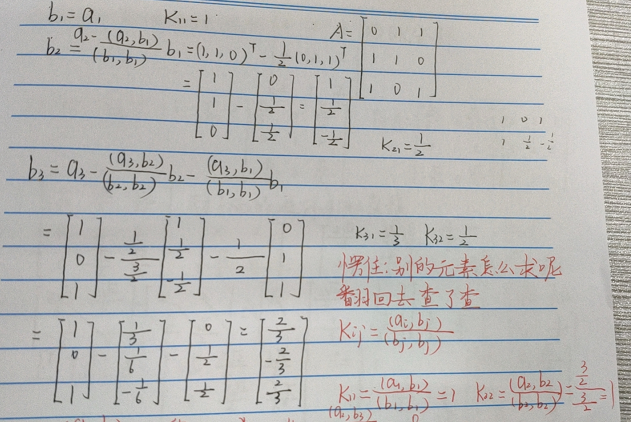 b₁=a₁ K₁₁=1
A=[0 1 1; 1 1 0; 1 0 1]
b₂=a₂-(a₂,b₁)/(b₁,b₁) b₁=(1,1,0)ᵀ-1/2(0,1,1)ᵀ
=[1; 1; 0]-[0; 1/2; 1/2]=[1; 1/2; -1/2]
1 0 1
1 1/2 -1/2
K₂₁=1/2
b₃=a₃-(a₃,b₂)/(b₂,b₂) b₂-(a₃,b₁)/(b₁,b₁) b₁
=[1; 0; 1]-(1/2)/(3/2)[1; 1/2; -1/2]-1/2[0; 1; 1]
K₃₁=1/3 K₃₂=1/2
愣住:别的元素怎么求呢
翻回去查了查
=[1; 0; 1]-[1/3; 1/6; -1/6]-[0; 1/2; 1/2]=[2/3; -2/3; 2/3]
Kij=(ai,bj)/(bj,bj)
K₁₁=(a₁,b₁)/(b₁,b₁)=1 K₂₂=(a₂,b₂)/(b₂,b₂)=(3/2)/(3/2)=1
(a₁,b₃) 0